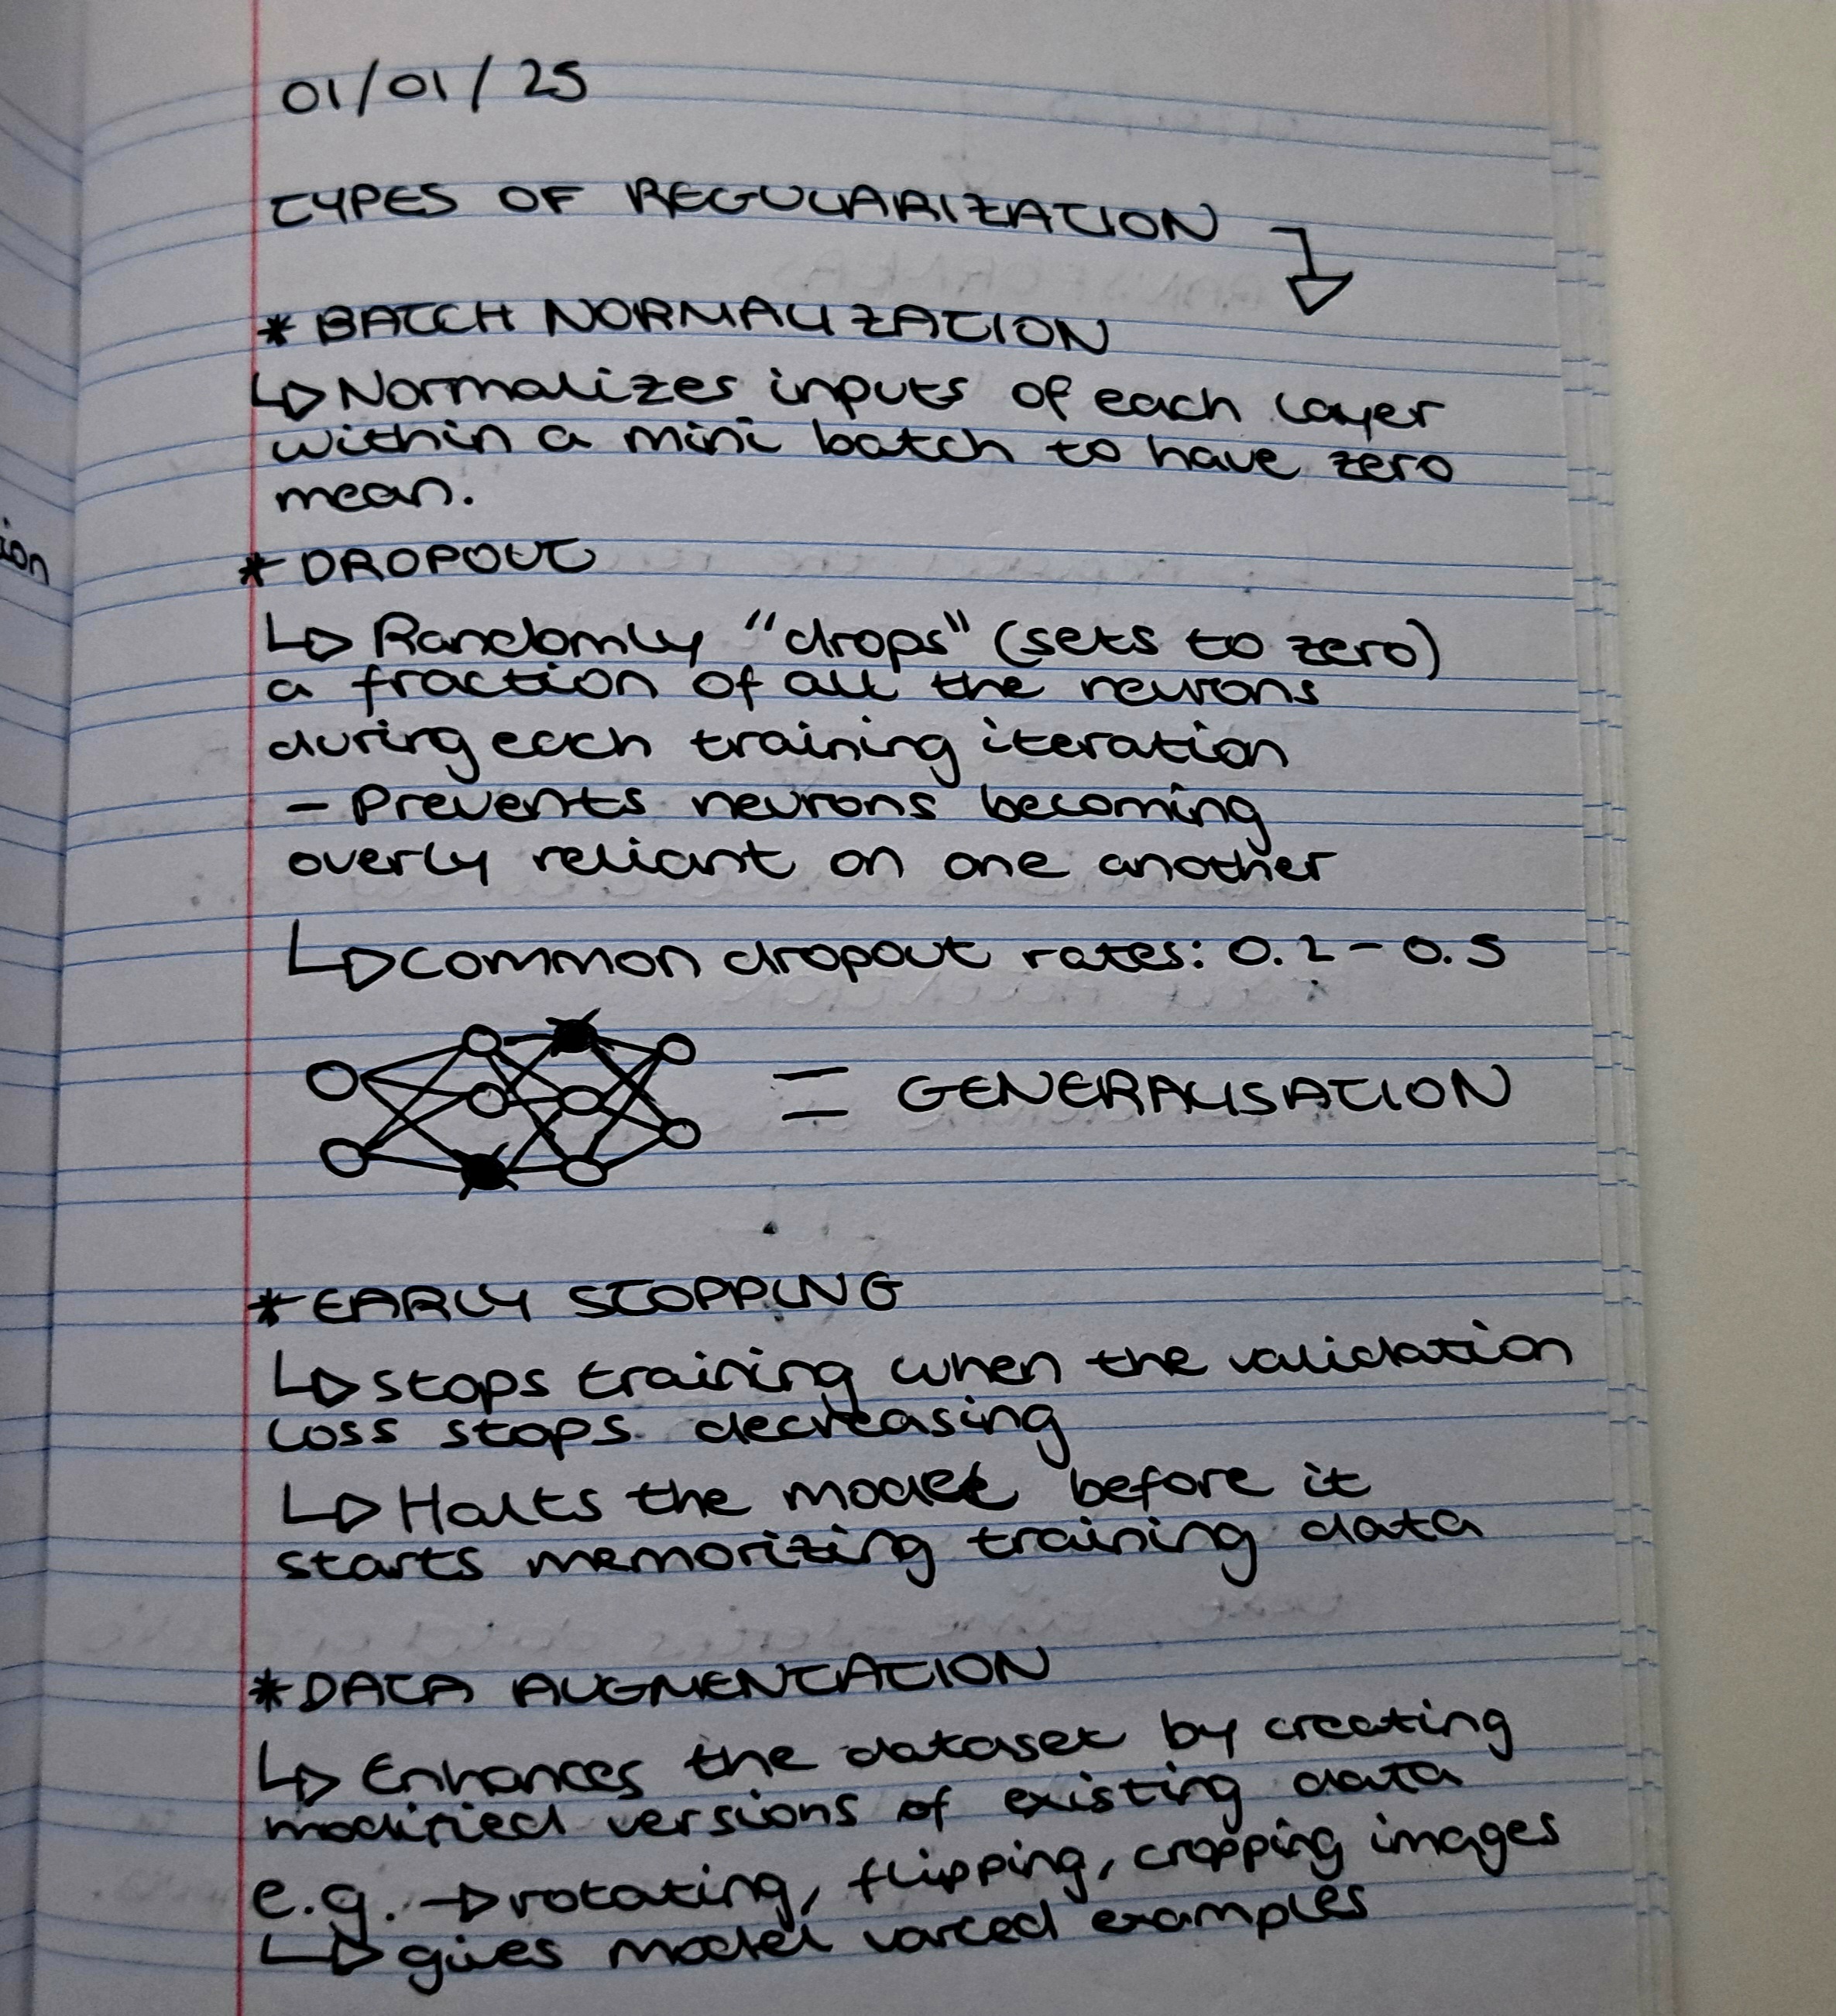 01/01/25
TYPES OF REGULARIZATION
* BATCH NORMALIZATION
↳ Normalizes inputs of each layer
within a mini batch to have zero
mean.
* DROPOUT
↳ Randomly "drops" (sets to zero)
a fraction of all the neurons
during each training iteration
- Prevents neurons becoming
overly reliant on one another
↳ common dropout rates: 0.2 - 0.5
= GENERALISATION
* EARLY STOPPING
↳ stops training when the validation
loss stops decreasing
↳ Halts the model before it
starts memorizing training data
* DATA AUGMENTATION
↳ Enhances the dataset by creating
modified versions of existing data
e.g. → rotating, flipping, cropping images
↳ gives model varied examples
ion